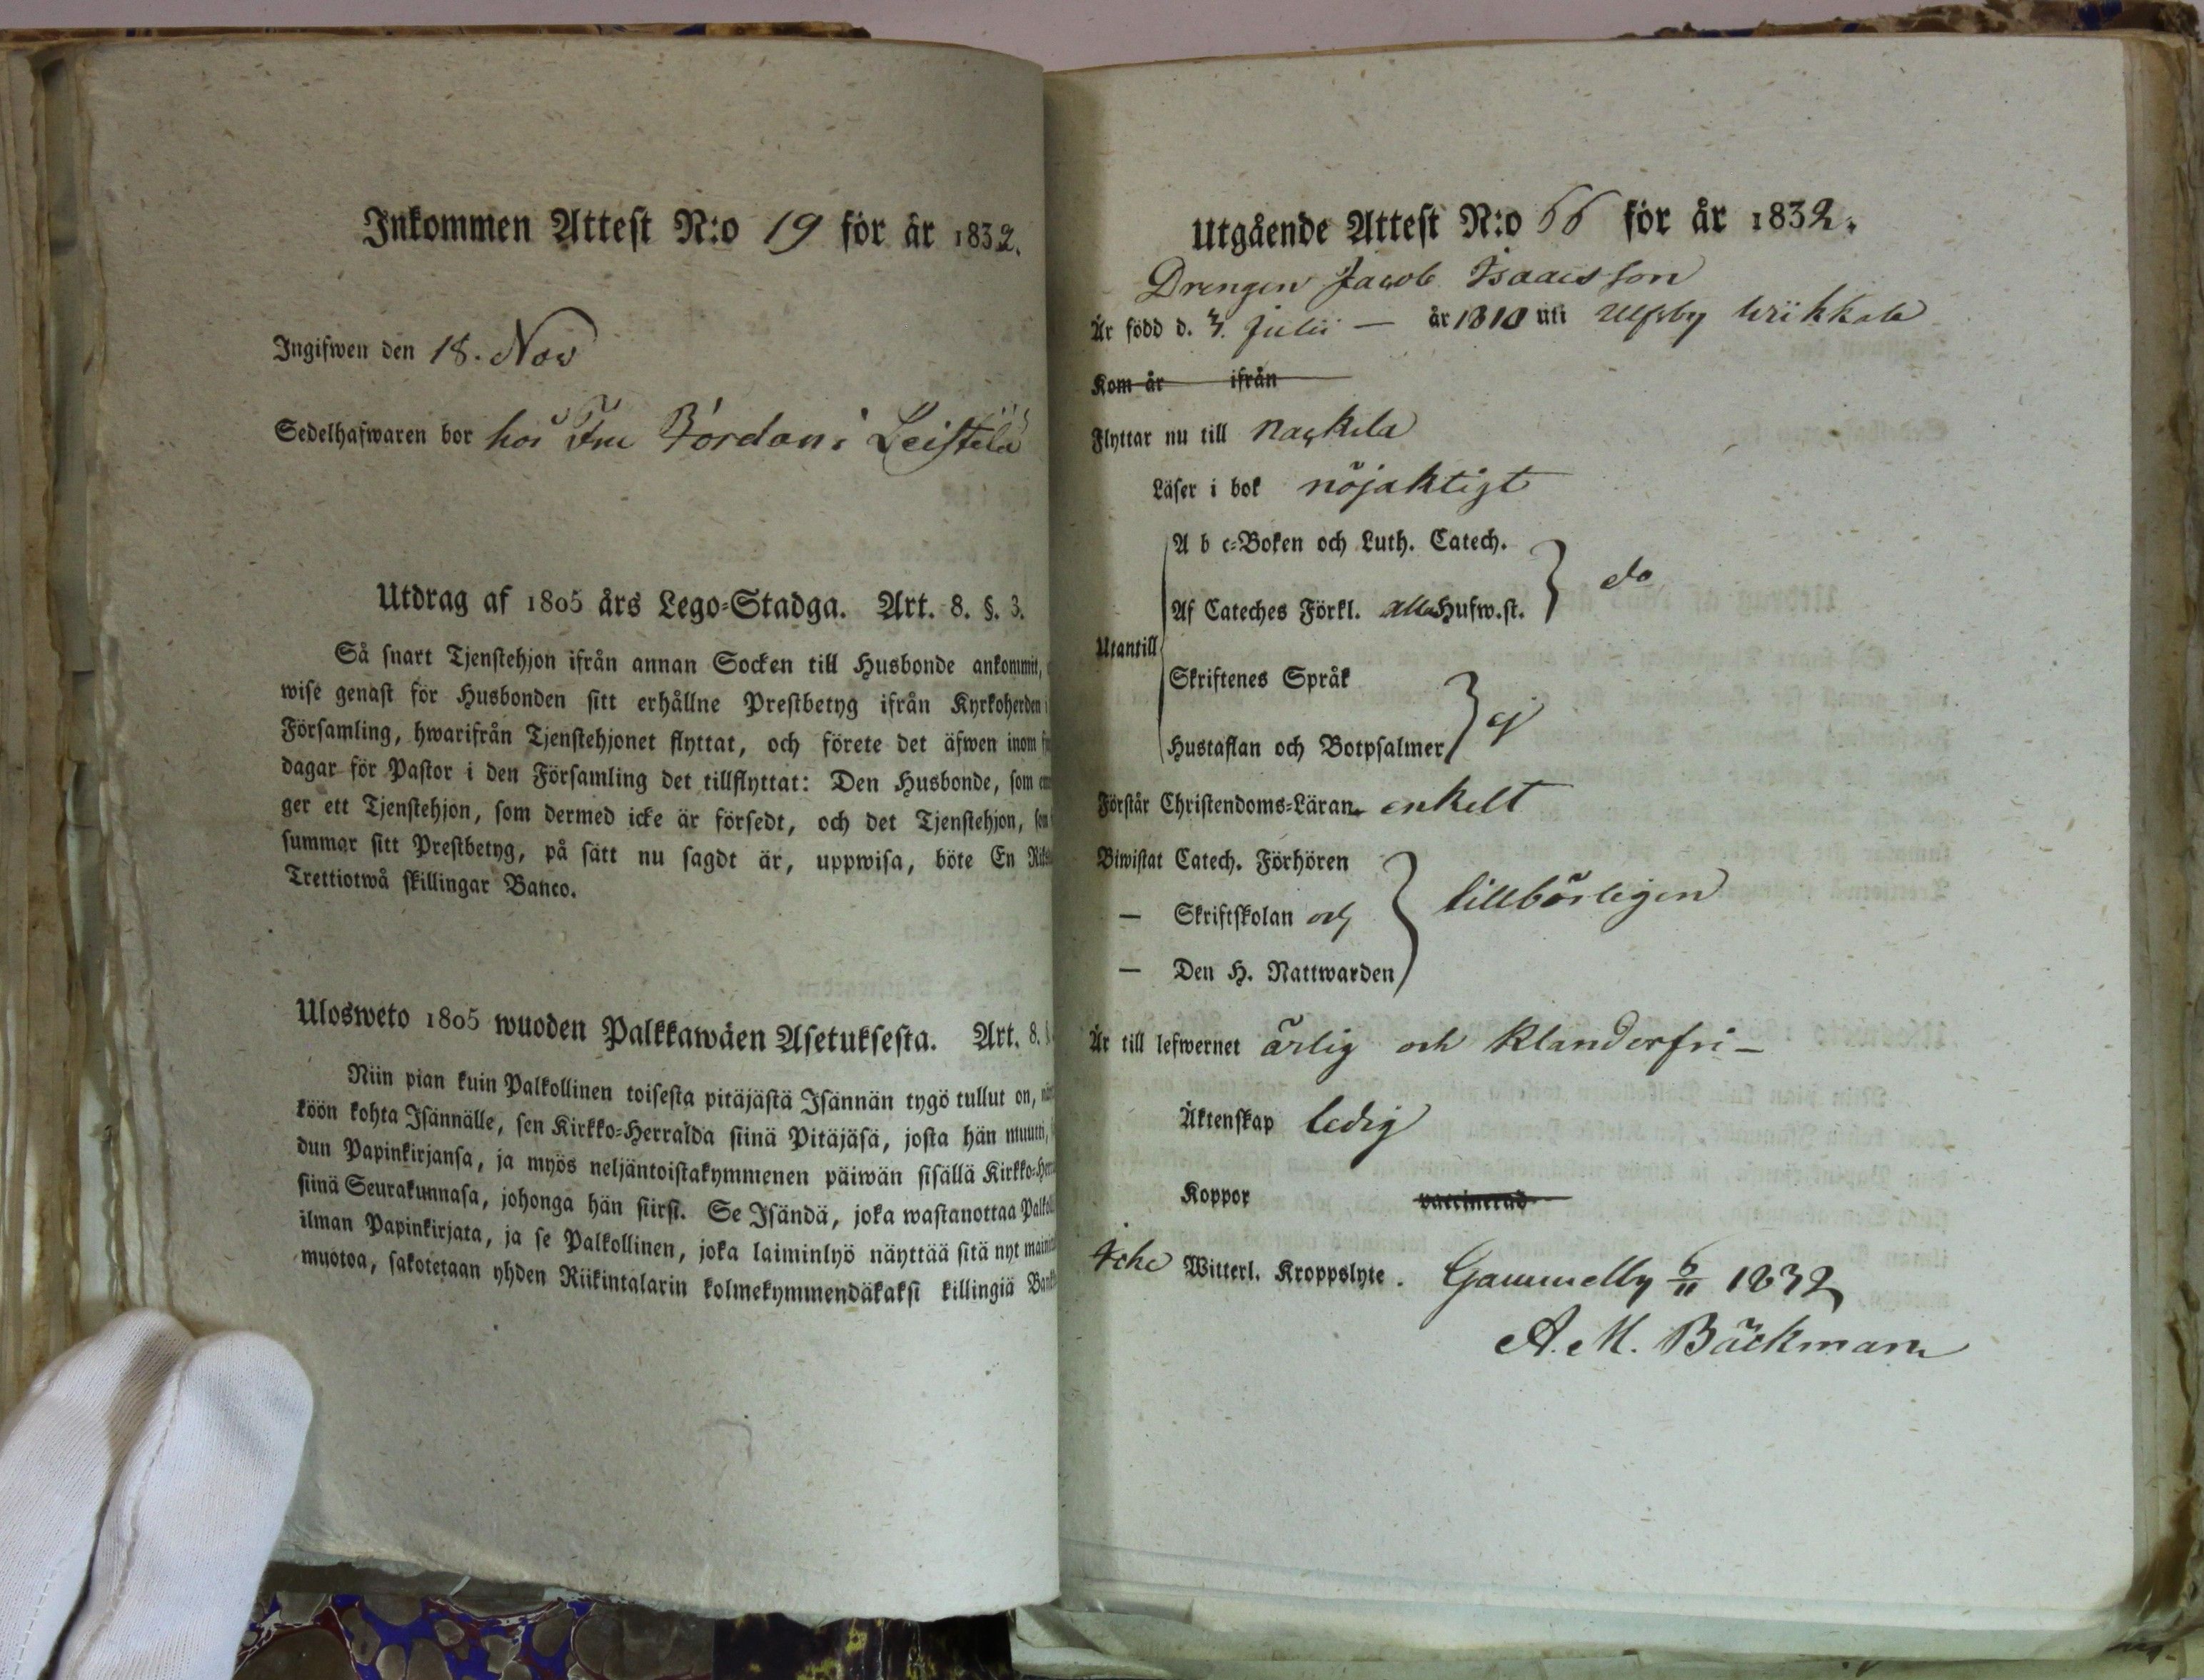 Inkommen Attest N:o 19 för år 1832.
Ingifwen den 18. Nov
Sedelhafwaren bor hos Fru Bördon i Leistilä
Utdrag af 1805 års Lego-Stadga. Art. 8. §. 3.
Så snart Tjenstehjon ifrån annan Socken till Husbonde ankommit,
wise genast för Husbonden sitt erhållne Prestbetyg ifrån Kyrkoherden i
Församling, hwarifrån Tjenstehjonet flyttat, och förete det äfwen inom
dagar för Pastor i den Församling det tillflyttat: Den Husbonde, som
ger ett Tjenstehjon, som dermed icke är försedt, och det Tjenstehjon,
summar sitt Prestbetyg, på sätt nu sagdt är, uppwisa, böte En
Trettiotwå skillingar Banco.
Ulosweto 1805 wuoden Palkkawäen Asetuksesta. Art. 8. §
Niin pian kuin Palkollinen toisesta pitäjästä Isännän tygö tullut on,
köön kohta Isännälle, sen Kirkko-Herralda siinä Pitäjäsä, josta hän muutti,
dun Papinkirjansa, ja myös neljäntoistakymmenen päiwän sisällä Kirkko-
siinä Seurakunnasa, johonga hän siirsi. Se Isändä, joka wastanottaa
ilman Papinkirjata, ja se Palkollinen, joka laiminlyö näyttää sitä nyt
muotoa, sakotetaan yhden Riikintalarin kolmekymmendäkaksi killingiä
Utgående Attest N:o 66 för år 1832.
Drengen Jacob Isaacsson
Är född d. 3. Julii — år 1810 uti Ulfsby Wiikkala
Kom år ifrån
Flyttar nu till Nackila
Läser i bok nöjaktigt
A b c-Boken och Luth. Catech.
Af Cateches Förkl. alla Hufw.st. } do
Utantill
Skriftenes Språk
Hustaflan och Botpsalmer } ej
Förstår Christendoms-Läran enkelt
Biwistat Catech. Förhören
— Skriftskolan och } tillbörligen
— Den H. Nattwarden
Är till lefwernet ärlig och klanderfri —
Äktenskap ledig
Koppor vaccinerad
Icke Witterl. Kroppslyte. Gammelby 6/11 1832
A. M. Bäckman